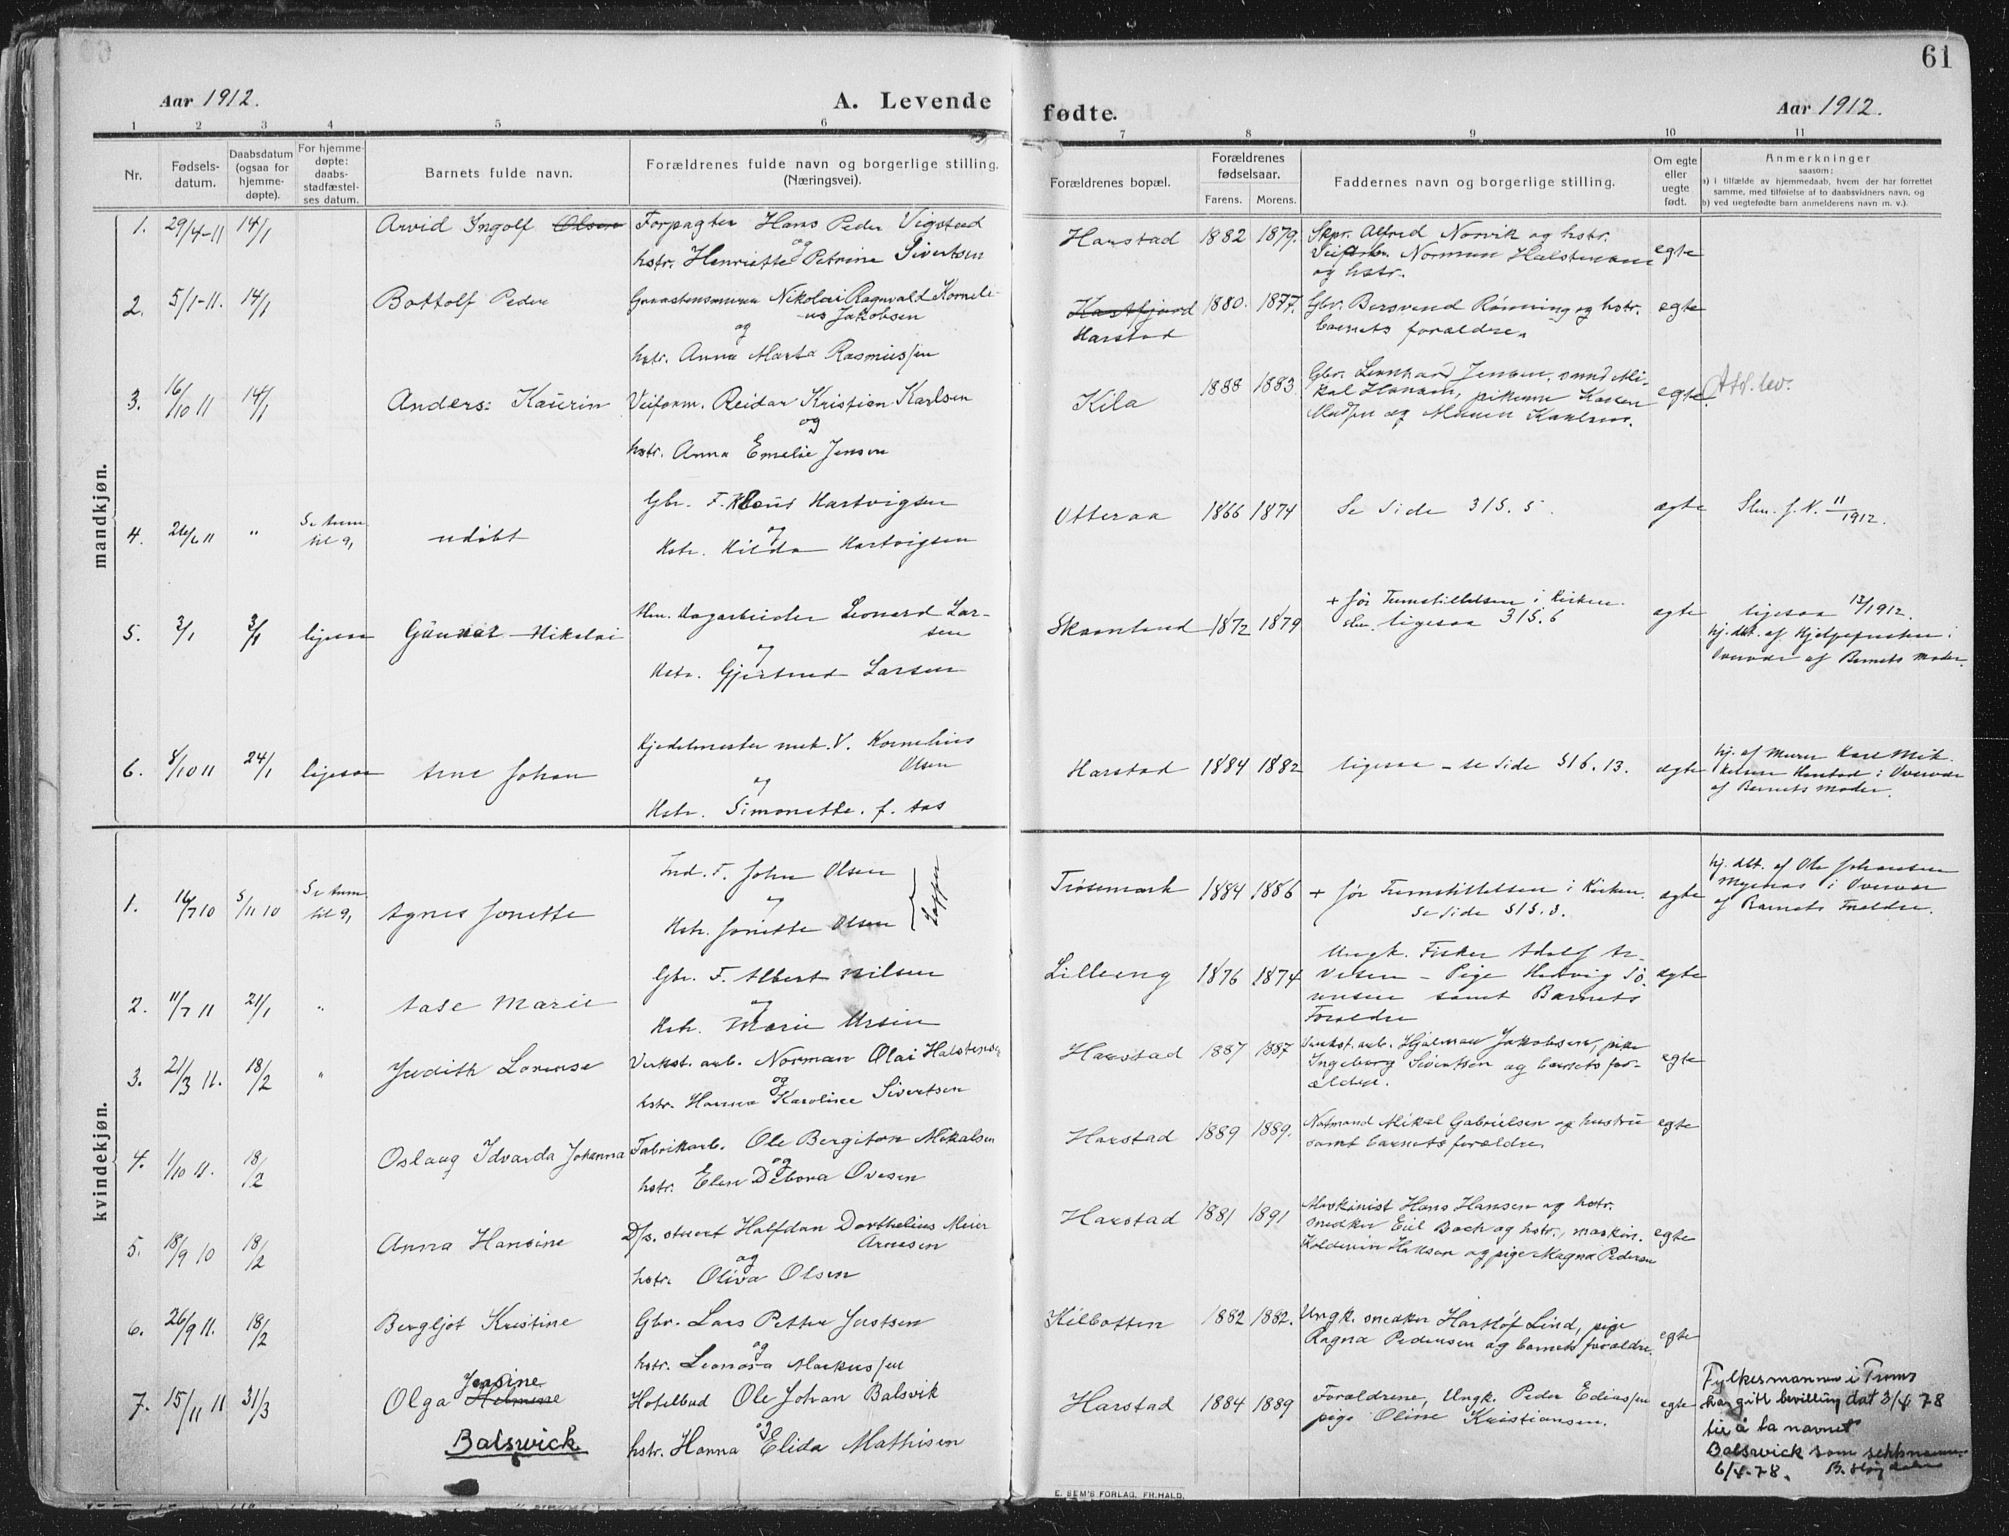 61
Aar 1912.
A. Levende
fødte.
Aar 1912.
1 2 3 4 5 6 7 8 9 10 11
Nr.
Fødsels-
datum.
Daabsdatum
(ogsaa for
hjemme-
døpte).
For hjemme-
døpte:
daabs-
stadfæstel-
ses datum.
Barnets fulde navn.
Forældrenes fulde navn og borgerlige stilling.
(Næringsvei).
Forældrenes bopæl.
Forældrenes
fødselsaar.
Farens. Morens.
Faddernes navn og borgerlige stilling.
Om egte
eller
uegte
født.
Anmerkninger
saasom:
a) i tilfælde av hjemmedaab, hvem der har forrettet
samme, med tilføielse af to daabsvidners navn, og
b) ved uegtefødte barn anmelderens navn m. v.).
mandkjøn.
1. 29/4-11 14/1 Arvid Ingolf Olsen Forpagter Hans Peder Vigstad
og
hstr. Henriette Petrine Sivertsen
Harstad 1882 1879. Skpr. Alfred Norvik og hstr.
Norman Halstensen egte
og hstr.
2. 5/1-11. 14/1 Bottolf Peder Nikolai Ragnvald Korneli-
us Jakobsen
og
hstr. Anna Marta Rasmussen
Kasfjord 1880. 1877. Gbr. Bersvend Rønning og hstr. egte
Harstad barnets forældre.
3. 16/10 11 14/1 Anders Kaurin Veiform. Reidar Kristian Karlsen
og
hstr. Anna Emelie Jensen
Kila 1888 1883 Gbr. Lennhard Jensen, smed Mi-
kal Hansen, pikerne egte
og Karlsen.
4. 26/6 11 " Se Anm. til 9, udøbt Gbr. F. Knud Hartvigsen
og
Hstr. Hilda Hartvigsen
Otteraa 1866 1874 Se Side 315. 5. ægte 11/1912.
5. 2/1 3/1 ligesaa Gunnar Nikolai Hm. Dagarbeider Leonard Lar-
sen
og
Hstr. Gjertrud Larsen
Skaanland 1872 1879 + før Fremstillelsen i Kirken.
ligesaa 315. 6 ægte ligesaa 12/1912.
hj. dbt. af
Overvær af Barnets Moder.
6. 8/10 11 24/1 ligesaa Arne Johan Kjedelmester V. Kornelius
Olsen
og
Hstr. Simonette. f. Aas
Harstad 1884 1882 ligesaa - se Side 316. 13. ægte hj. af Murer Karl Mik-
kelsen Harstad i Overvær
af Barnets Moder.
kvindekjøn.
1. 16/7 10 5/11 10 Se Anm. til 9, Agnes Jonette Ind. F. John Olsen
og
Hstr. Jonette Olsen
Trøsemark 1884 1886 + før Fremstillelsen i Kirken. ægte
Se Side 315. 3.
hj. dbt. af Ole Johansen
i Overvær
af Barnets Forældre.
2. 11/7 11 21/1 " Aase Marie Gbr. F. Albert Nilsen
og
Hstr. Marie Ursin
Lilleeng 1876 1874 Ungk. Fisker Adolf Ar-
- Pige Hedvig Jo- ægte
samt Barnets
Forældre
3. 21/3 11. 18/2 " Judith Lorense Verkst. arb. Norman Olai Halstensen
og
hstr. Hanna Karoline Sivertsen
Harstad 1887 1887 Verkst. arb. Hjalmar Jakobsen, pike
Ingeborg Sivertsen og barnets for- egte
ældre.
4. 1/10 11. 18/2 Oslaug Edvarda Johanna Fabrikarb. Ole Bergiton Mikalsen
og
hstr. Elen Debora Ovesen
Harstad 1889 1889. Notmand Mikal Gabrielsen og hustru egte
samt barnets forældre.
5. 18/9 10 18/2 Anna Hansine D/s. stuert Halfdan Dorthelius Meier
Arnesen
og
hstr. Oliva Olsen
Harstad 1881 1891 Maskinist Hans Hansen og hstr.
snedker Eiil Bach og hstr., maskin. egte
og pige Magna Pedersen
6. 26/9 11. 18/2 Bergljot Kristine Gbr. Lars Petter Justsen
og
hstr. Leonora Markussen
Kilbotten 1882 1882. Ungk. snedker Hartløf Lind, pige
Ragna Pedersen og barnets forældre. egte
7. 15/11 11 31/3 Olga Jensine Hotelbud Ole Johan Balsvik
og
Balswick hstr. Hanna Elida Mathisen
Harstad 1884 1889 Forældrene, Ungk. Peder Ediassen
pige Oline Kristiansen. egte
Fylkesmannen i Troms
har gitt bevilling dat 3/4 78
til å ta navnet
Balswick som slektsnavn.
6/4-78.
E. SEM'S FORLAG, FR.HALD.